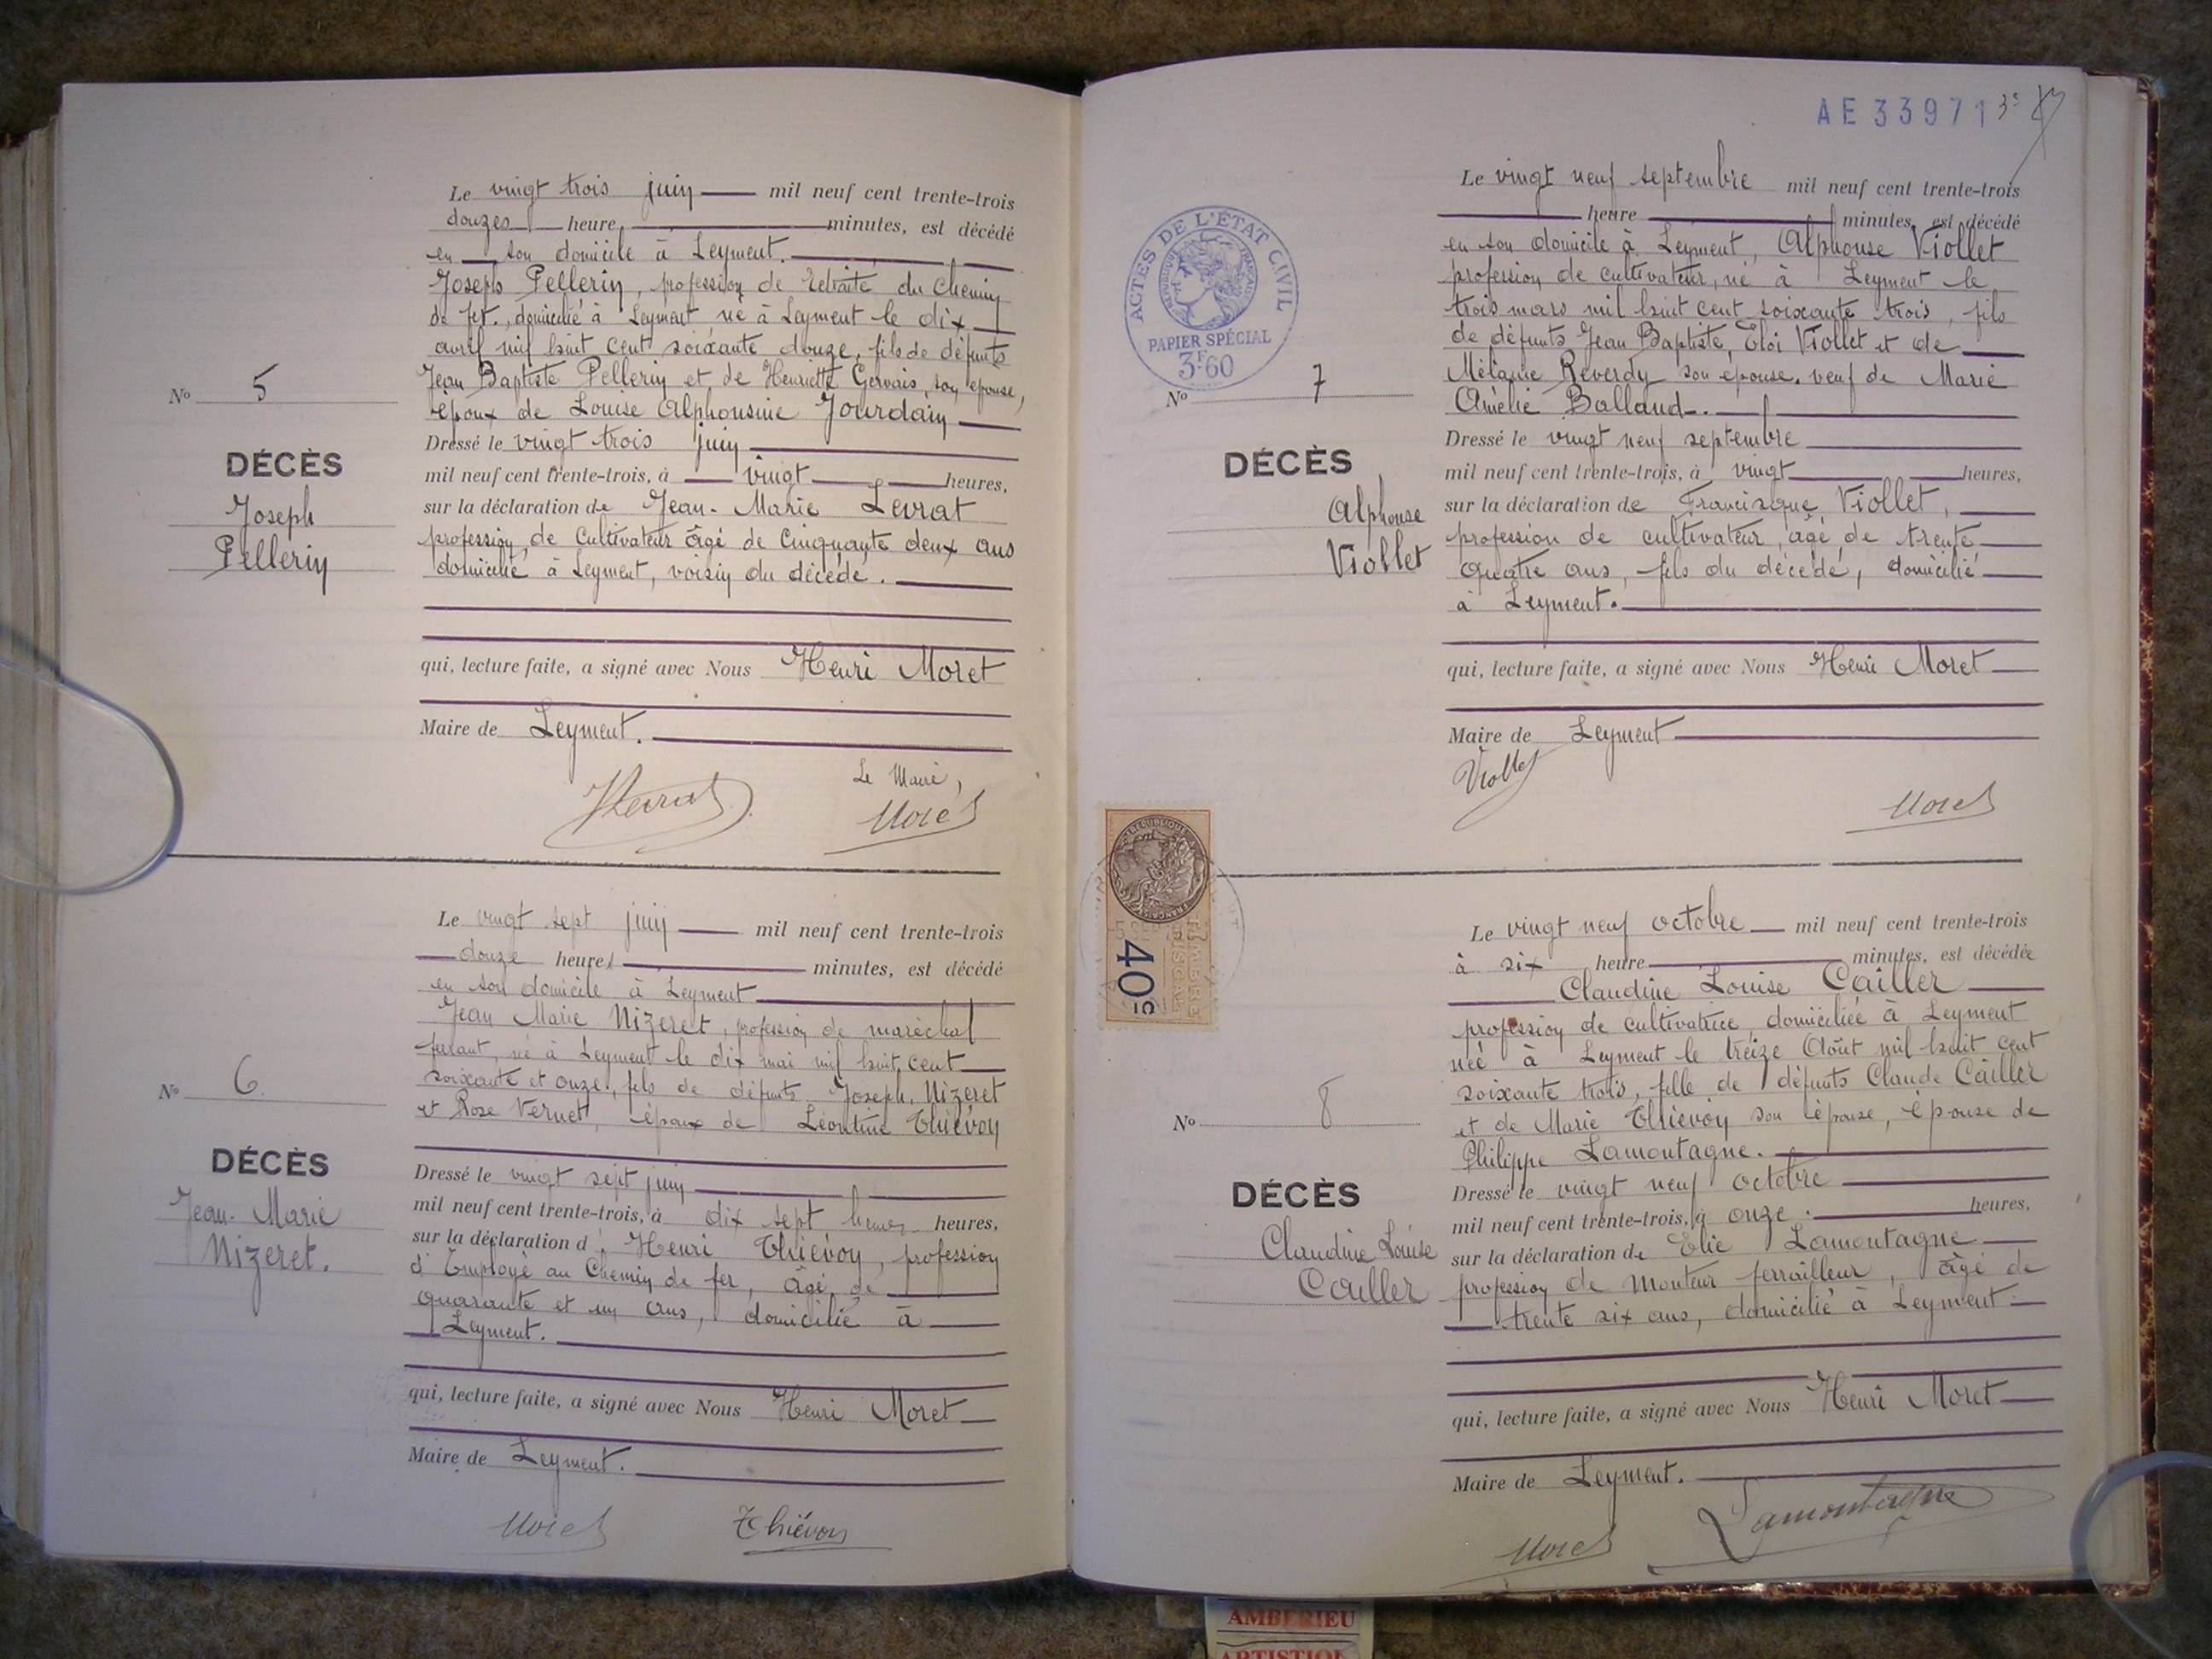 Le vingt trois juin mil neuf cent trente-trois
douzes heure minutes, est décédé
en son domicile à Leyment.
Joseph Pellerin, profession de Retraité du Chemin
de fer, domicilié à Leyment né à Leyment le dix
avril mil huit cent soixante douze, fils de défunts
Jean Baptiste Pellerin et de Henriette Gervais, son épouse,
époux de Louise Alphonsine Jourdain
Dressé le vingt trois juin
mil neuf cent trente-trois, à vingt heures,
sur la déclaration de Jean-Marie Levrat
profession de Cultivateur âgé de Cinquante deux ans
domicilié à Leyment, voisin du décédé.
qui, lecture faite, a signé avec Nous Henri Moret
Maire de Leyment.
Le Maire,
Moret
No 5
DÉCÈS
Joseph
Pellerin
Le vingt sept juin mil neuf cent trente-trois
douze heures minutes, est décédé
en son domicile à Leyment
Jean Marie Nizeret, profession de maréchal
ferrant, né à Leyment le dix mai mil huit cent
soixante et onze, fils de défunts Joseph Nizeret
et Rose Vernet, époux de Léontine Thiévon
Dressé le vingt sept juin
mil neuf cent trente-trois, à dix sept heures heures,
sur la déclaration d Henri Thiévon, profession
d'Employé au Chemin de fer, âgé de
quarante et un ans, domicilié à
Leyment.
qui, lecture faite, a signé avec Nous Henri Moret
Maire de Leyment.
Moret Thiévon
No 6.
DÉCÈS
Jean-Marie
Nizeret.
AE33971
ACTES DE L'ÉTAT CIVIL
PAPIER SPÉCIAL
3F60
Le vingt neuf septembre mil neuf cent trente-trois
heure minutes, est décédé
en son domicile à Leyment, Alphonse Viollet
profession de cultivateur, né à Leyment le
trois mars mil huit cent soixante trois, fils
de défunts Jean Baptiste, Eloi Viollet et de
Mélanie Reverdy son épouse, veuf de Marie
Amélie Balland.
Dressé le vingt neuf septembre
mil neuf cent trente-trois, à vingt heures,
sur la déclaration de Francisque Viollet,
profession de cultivateur, âgé de trente
quatre ans, fils du décédé, domicilié
à Leyment.
qui, lecture faite, a signé avec Nous Henri Moret
Maire de Leyment
Viollet
Moret
No 7
DÉCÈS
Alphonse
Viollet
40c
Le vingt neuf octobre mil neuf cent trente-trois
à six heure minutes, est décédée
Claudine Louise Cailler
profession de cultivatrice, domiciliée à Leyment
née à Leyment le treize Août mil huit cent
soixante trois, fille de défunts Claude Cailler
et de Marie Thiévon son épouse, épouse de
Philippe Lamontagne.
Dressé le vingt neuf octobre
mil neuf cent trente-trois, à onze. heures,
sur la déclaration de Elie Lamontagne
profession de monteur ferrailleur, âgé de
trente six ans, domicilié à Leyment
qui, lecture faite, a signé avec Nous Henri Moret
Maire de Leyment.
Moret Lamontagne
No 8
DÉCÈS
Claudine Louise
Cailler
AMBERIEU